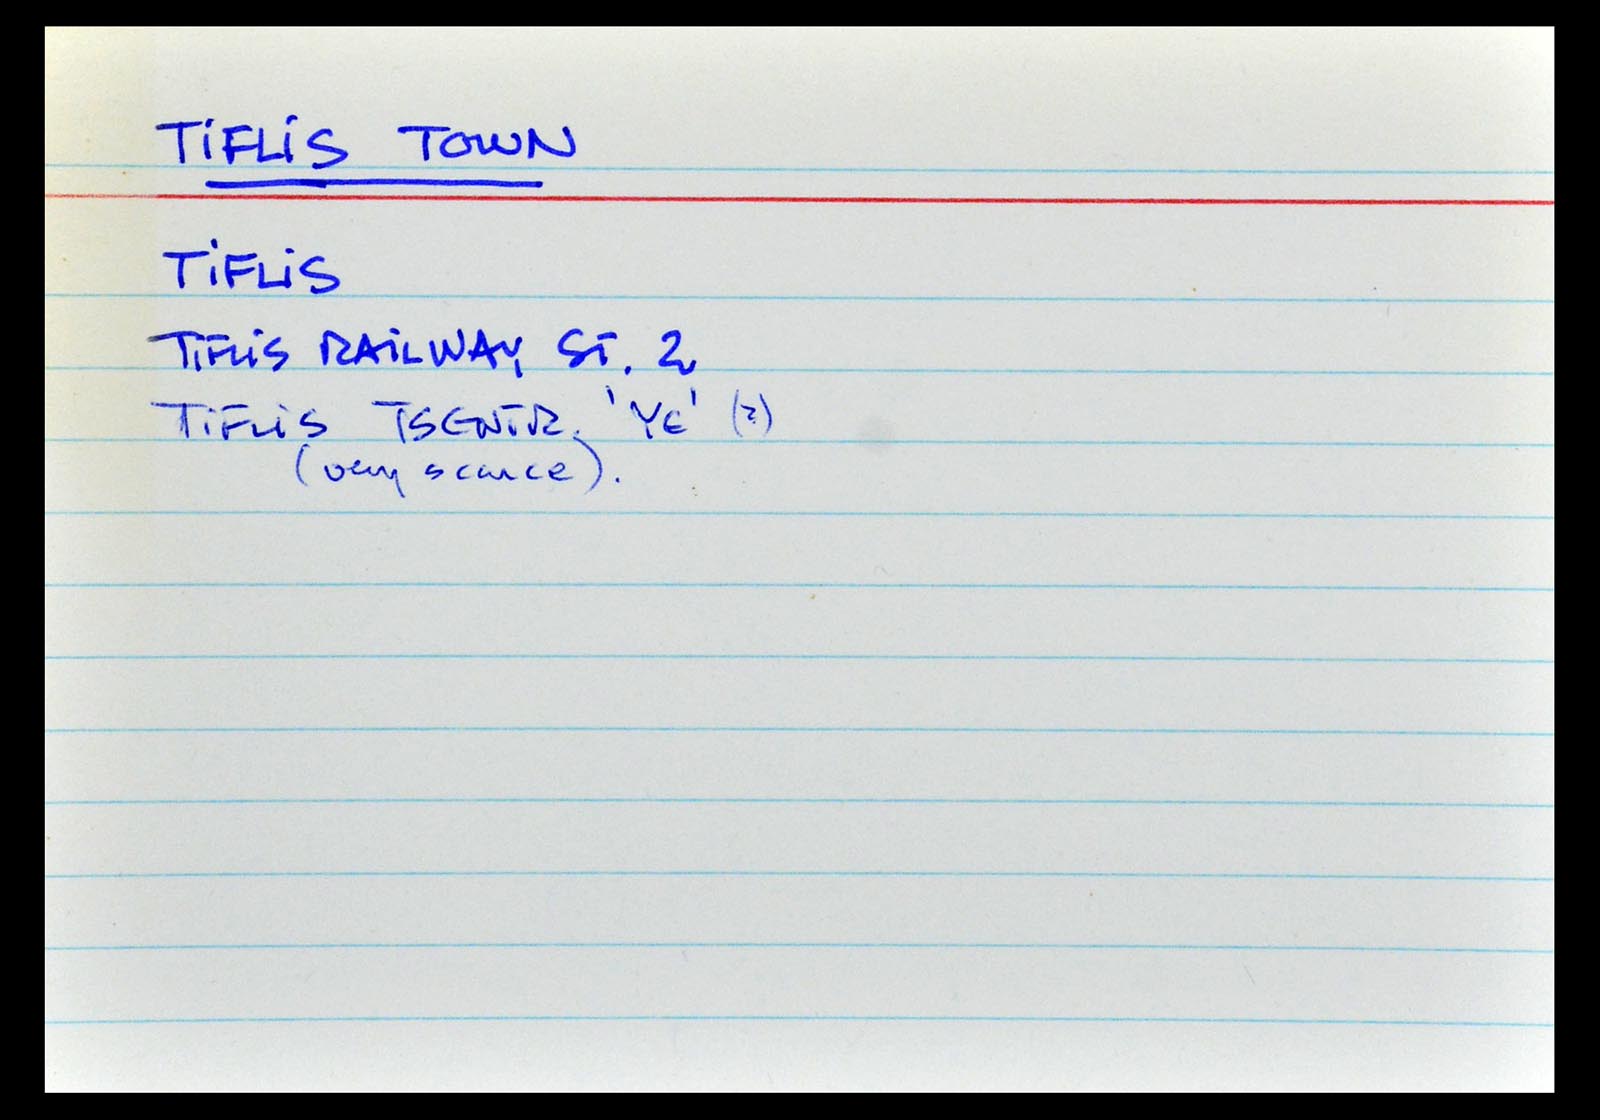 TiFLiS TOWN
TiFLiS
TiFLiS RAiLWAY ST. 2
TiFLiS TSENTR. 'YE' (?)
(very scarce).